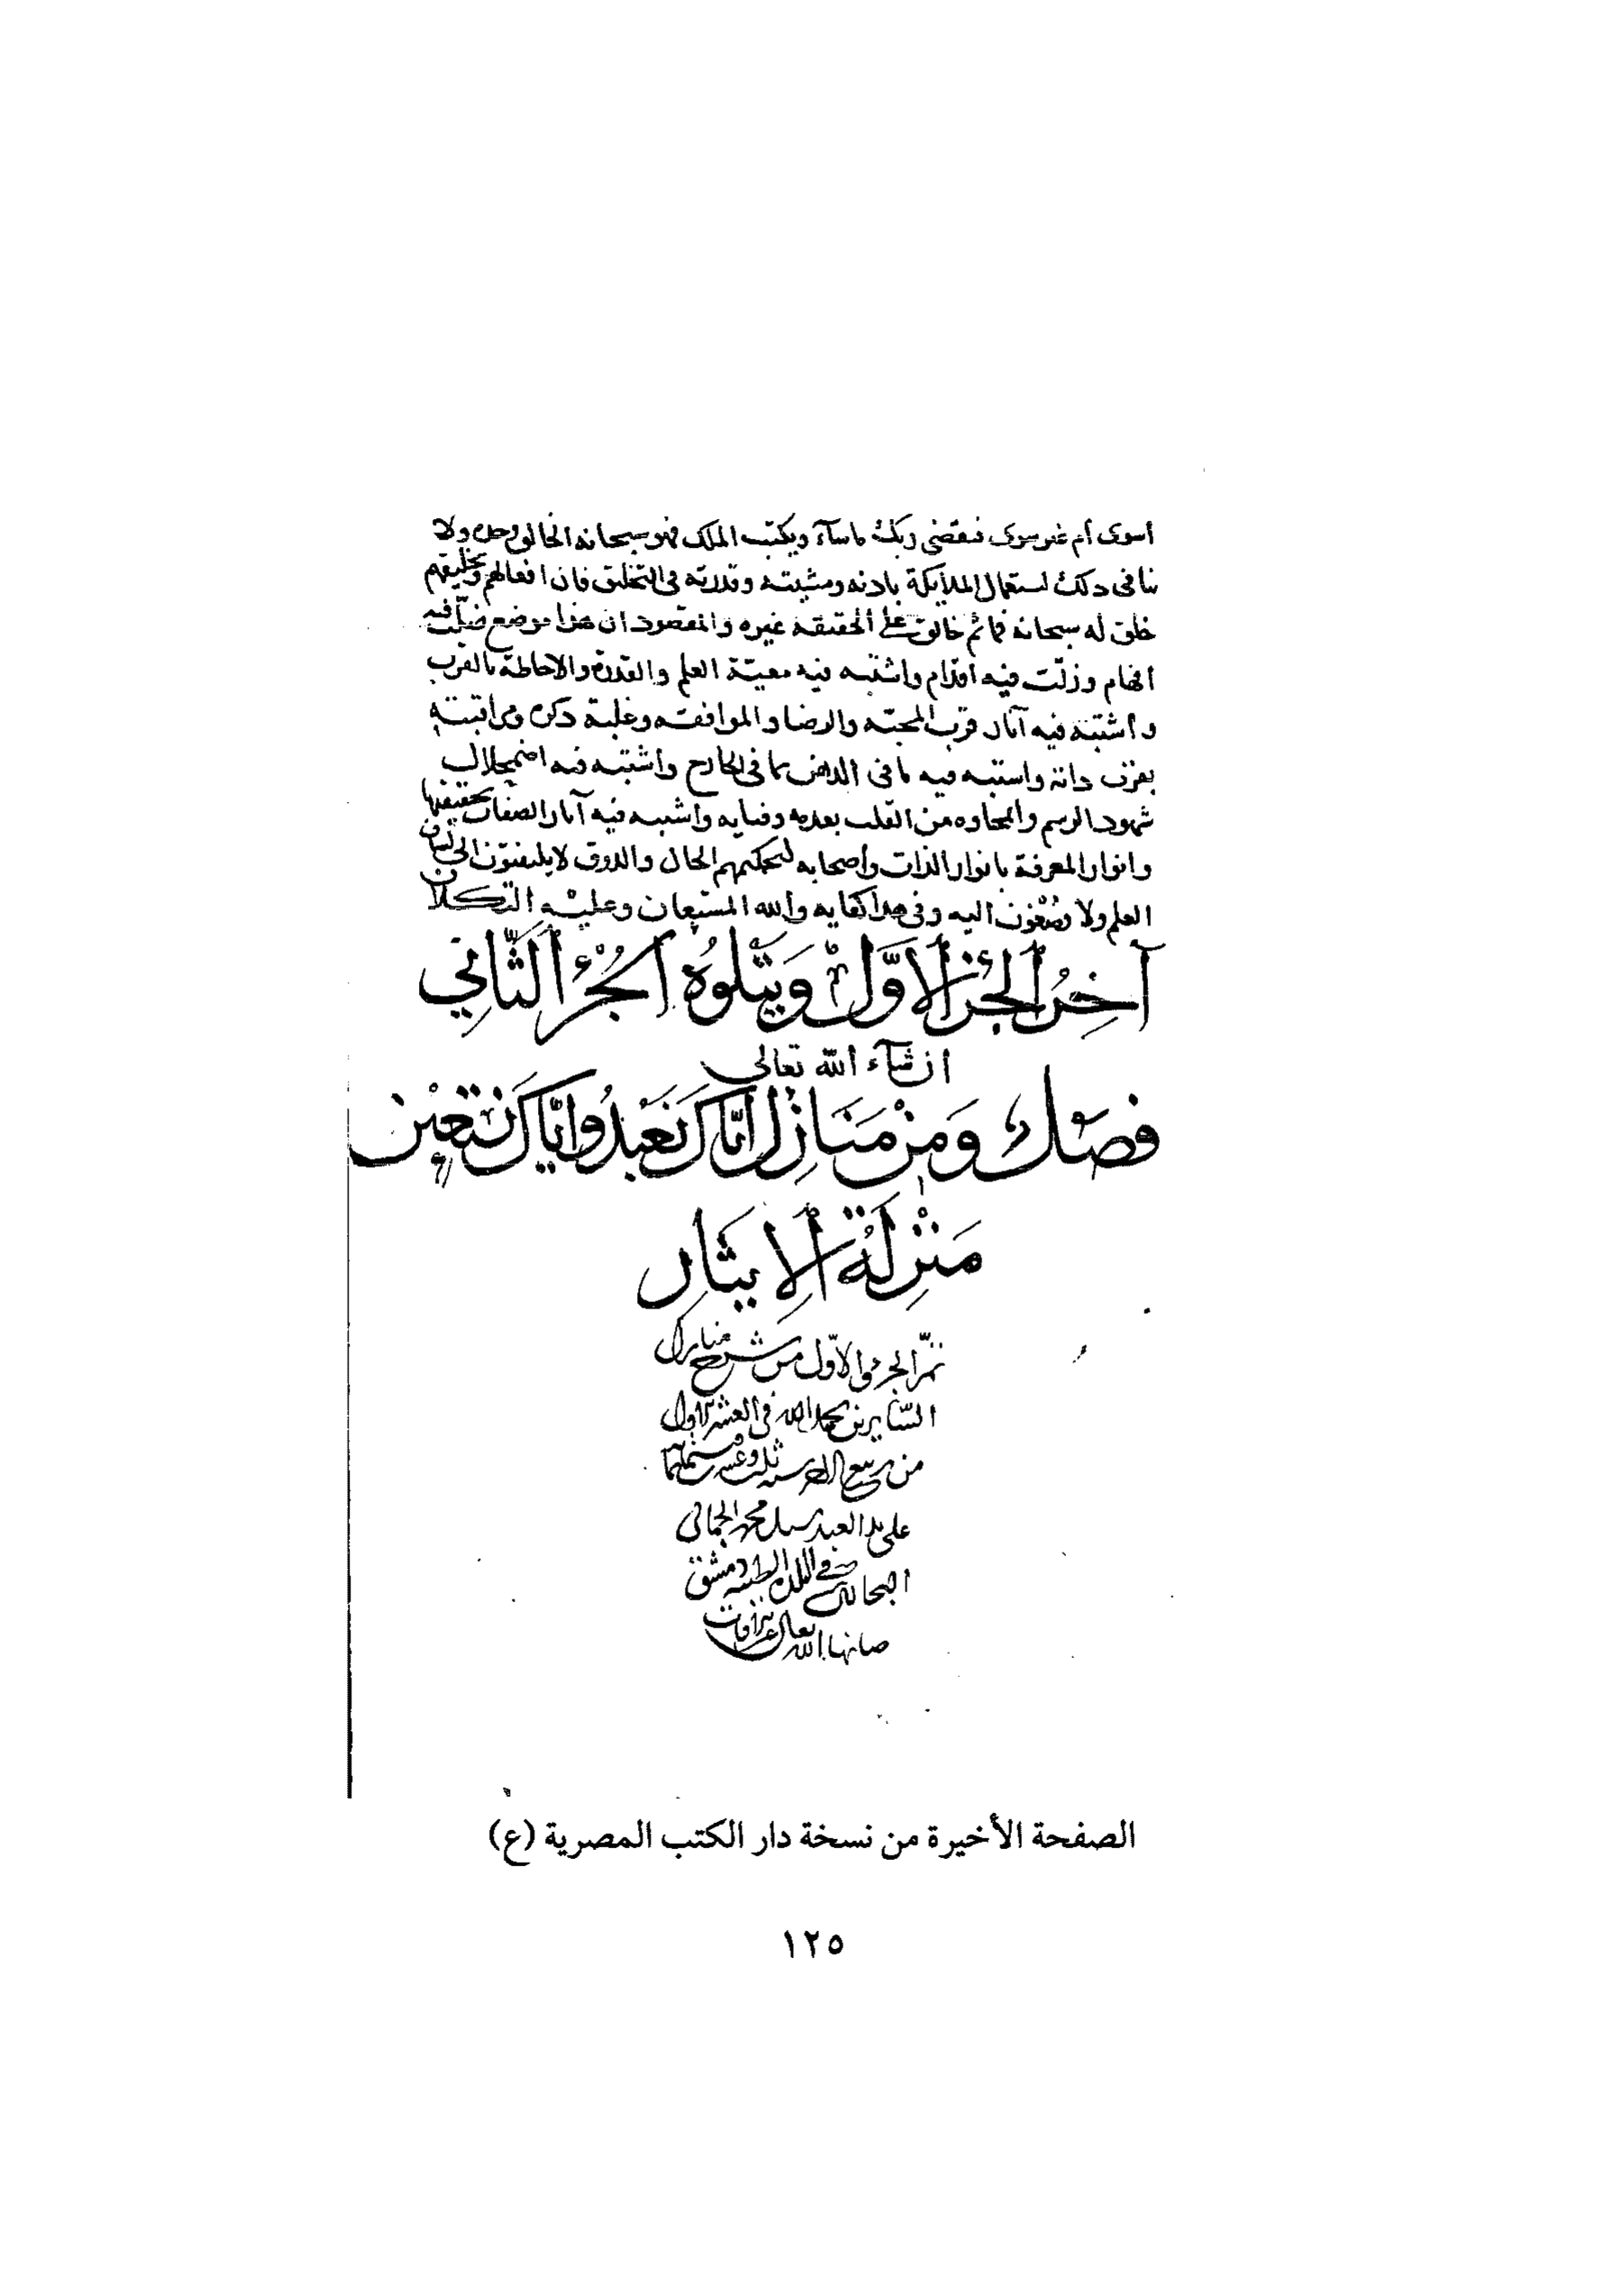 اسوى أم غير سوى فيقضى ربك ماساء ويكتب الملك فهو سبحانه الخالق وحده ولا
ينافى ذلك استعمال الملائكة بادنه ومشيئته وقدرته فى التخليق فان افعالهم وتخليقهم
خلق له سبحانه فما ثم خالق على الحقيقه غيره والمقصود ان هذا موضع ضلت فيه
افهام وزلت فيه أقدام واشتبه فيه معيّة العلم والقدرة والاحاطة بالقرب
واشتبه فيه آثار قرب المحبته والرضا والموافقه وغلبة ذكره ومراقبته
بقرب ذاته واشتبه فيه ما فى الذهن بما فى الخارج واشتبه فيه اضمحلال
شهود الرسم وانمحاوه من القلب بعدمه وفنايه واشتبه فيه آثار الصفات بحقيقتها
وانوار المعرفة بانوار الذات وأصحابه لتحكيمهم الحال والذوق لا يلتفتون الى لسان
العلم ولا يصغون اليه وفى هذا كفايه والله المستعان وعليه التكلان
آخِرُ الجُزْءِ الأوَّلِ وَيَتْلُوهُ الجُزْءُ الثَّانِي
ان شآء الله تعالى
فَصْل وَمِنْ مَنَازِلِ ايَّاكَ نَعْبُدُ وَايَّاكَ نَسْتَعِيْن
مَنْزِلَةُ الاِيثَار
تمّ الجزء الاوّل من شرح منازل
السّايرين بحمد الله فى العشر الاول
من ربيع سنه ثلث وعشرين
على يد العبد محمد
فى البلده الطيبه دمشق
صانها الله تعالى
الصفحة الأخيرة من نسخة دار الكتب المصرية (ع)
١٢٥